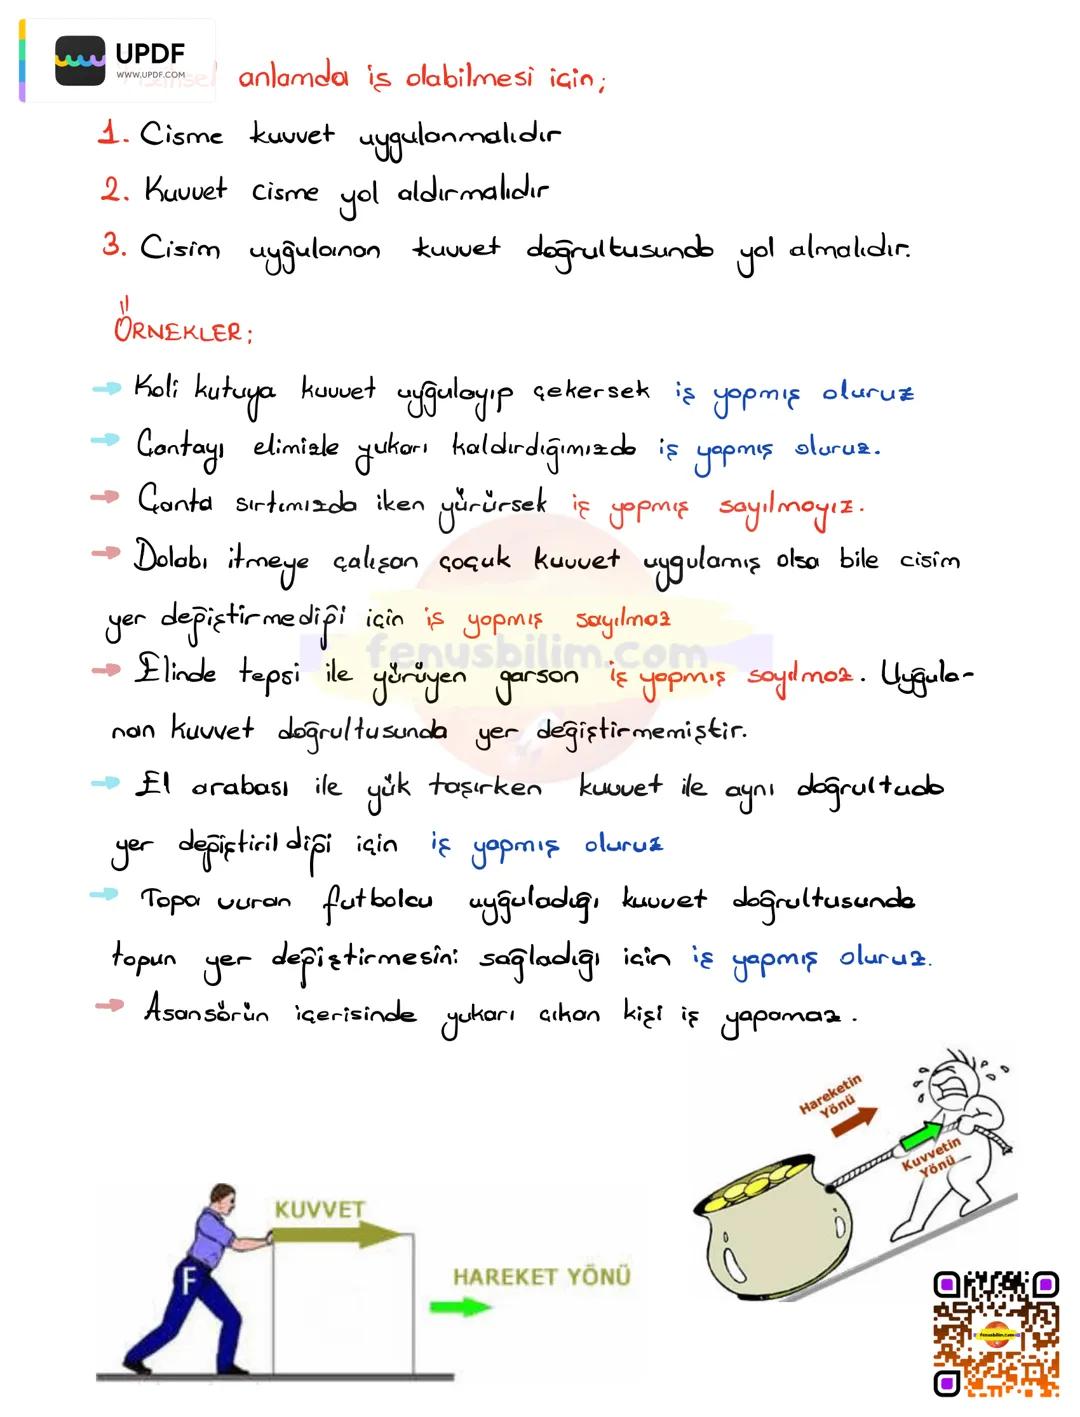 UPDF
WWW.UPDF.COM
anlamda iş olabilmesi için;
1. Cisme kuvvet uygulanmalıdır
2. Kuvvet cisme yol aldırmalıdır
3. Cisim uyğulanan kuvvet doğrultusunda yol almalıdır.
ÖRNEKLER;
Koli kutuya kuvvet uyğulayıp çekersek iş yapmış oluruz
Çantayı elimizle yukarı kaldırdığımızda iş yapmış oluruz.
Çanta sırtımızda iken yürürsek iş yapmış sayılmayız.
Dolabı itmeye çalışan çoçuk kuvvet uygulamış olsa bile cisim
yer değiştirmediği için iş yapmış sayılmaz
fenusbilim.com
Elinde tepsi ile yürüyen garson iş yapmış sayılmaz. Uyğula-
nan kuvvet doğrultusunda yer değiştirmemiştir.
El arabası ile yük taşırken kuvvet ile aynı doğrultuda
yer değiştirildiği için iş yapmış oluruz
Topa vuran futbolcu uyğuladığı kuvvet doğrultusunda
topun yer değiştirmesini sağladığı için iş yapmış oluruz.
Asansörün içerisinde yukarı çıkan kişi iş yapamaz.
Hareketin
Yönü
Kuvvetin
Yönü
KUVVET
F
HAREKET YÖNÜ
fenusbilim.com